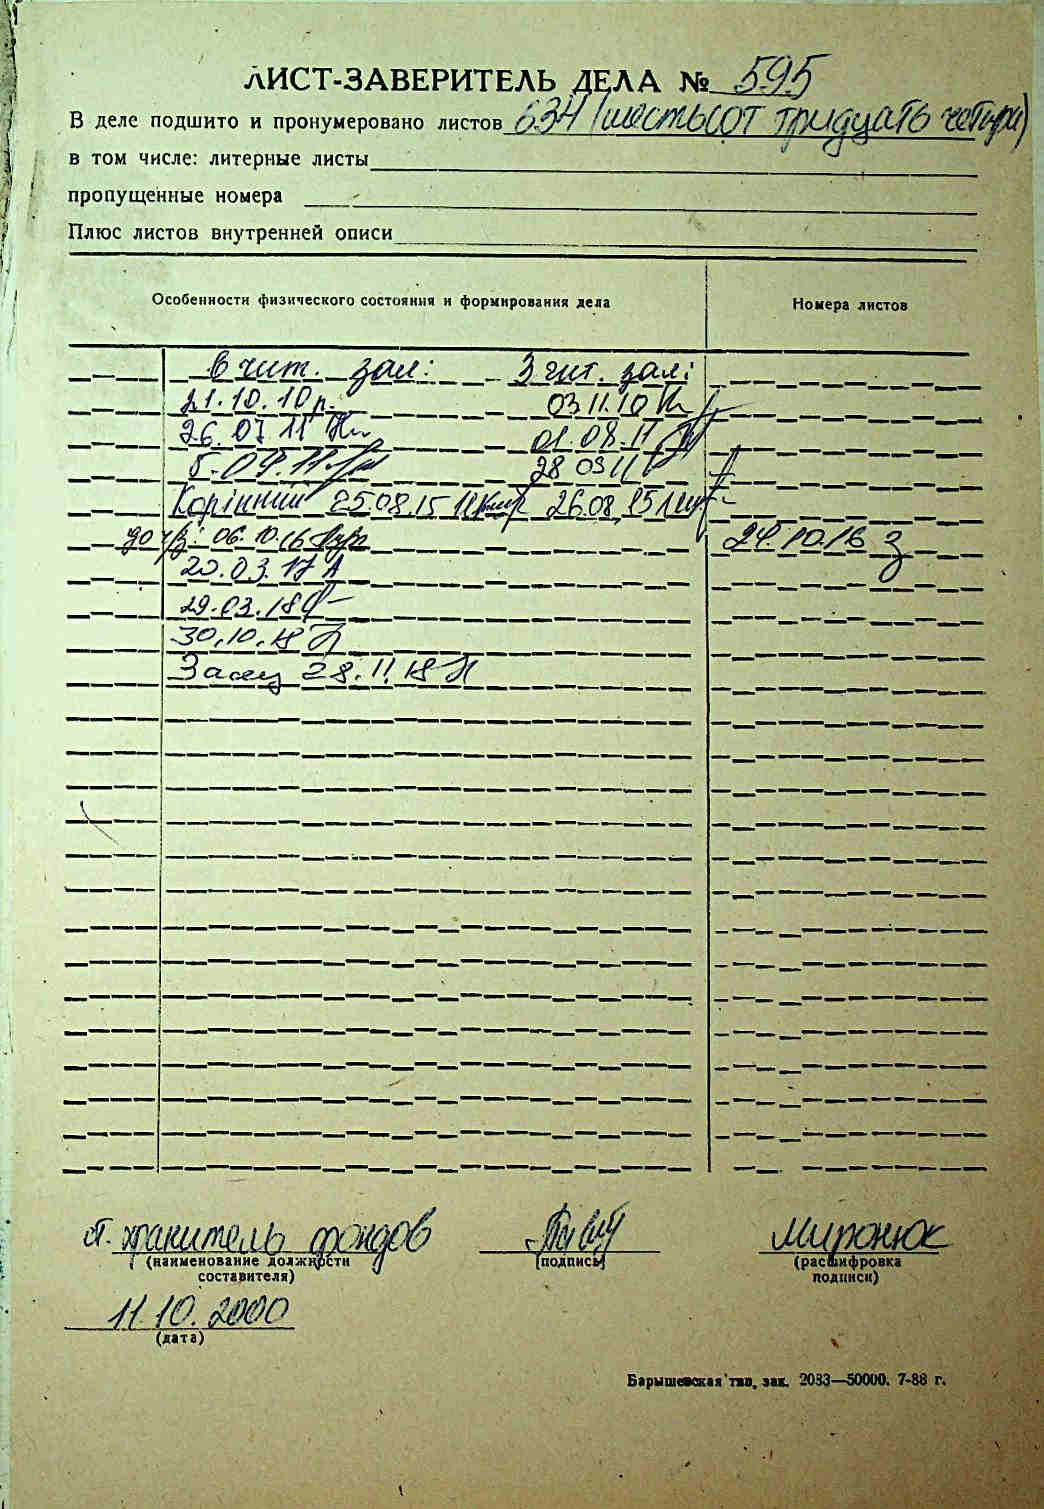 ЛИСТ-ЗАВЕРИТЕЛЬ ДЕЛА № 595
В деле подшито и пронумеровано листов 634 (шестьсот тридцать четыри)
в том числе: литерные листы
пропущенные номера
Плюс листов внутренней описи
Особенности физического состояния и формирования дела Номера листов
В чит. зал: З чит. залі
21.10.10р. 03 11.10
26.07 11 01.08.11
5.09.11 28 03 11
Корінний 25.08.15 26.08.15
до ч/з: 06.10.16 24.10.16 з
20.03.17 А
29.03.18
30.10.18
28.11.18
ст. хранитель фондов Миронюк
(наименование должности (подпись) (расшифровка
составителя) подписи)
11.10.2000
(дата)
Барышевская тип. зак. 2033—50000. 7-88 г.